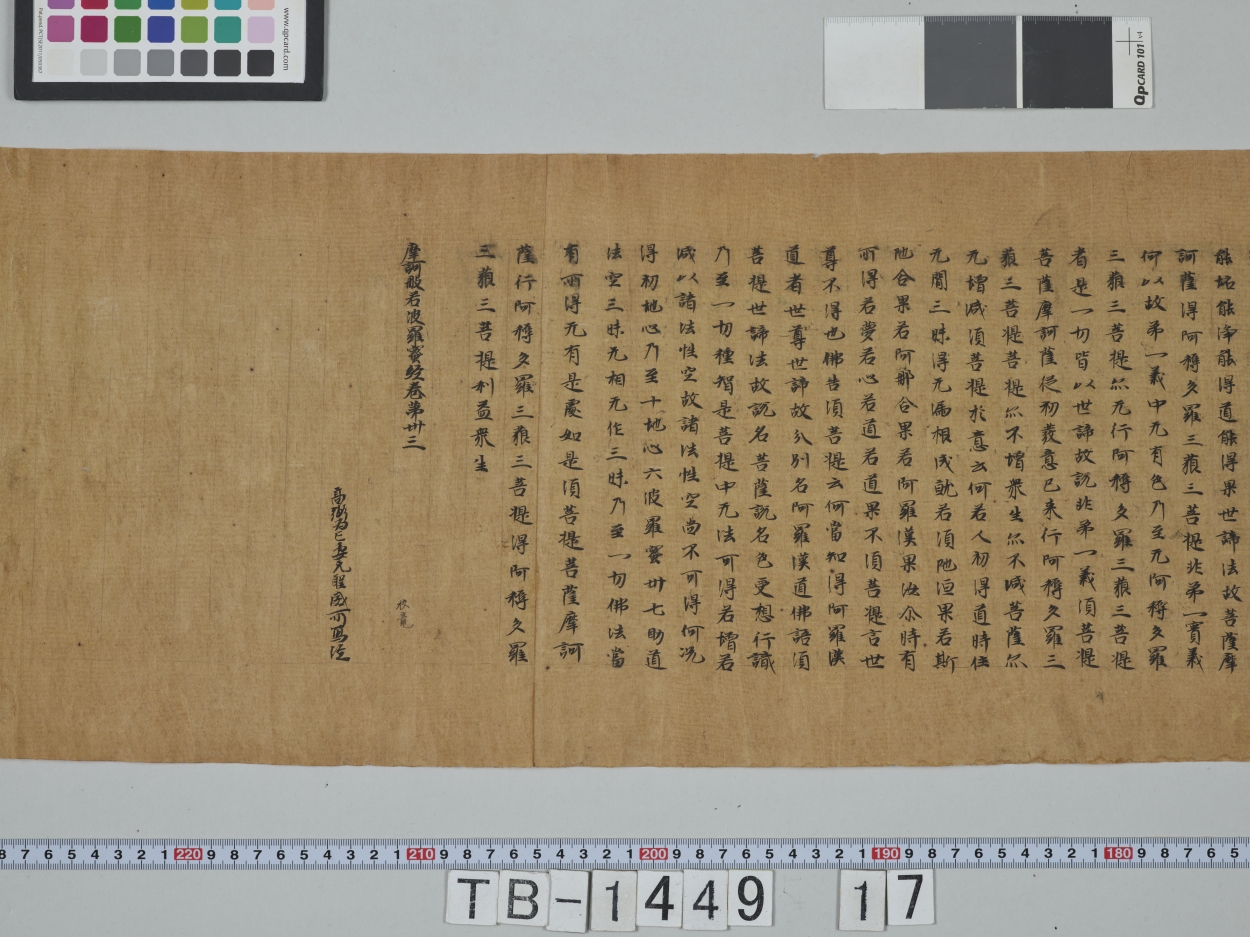 能垢能淨能得道能得果世諦法故菩薩摩
訶薩得阿耨多羅三藐三菩提非第一實義
何以故第一義中无有色乃至无阿耨多羅
三藐三菩提尒无行阿耨多羅三藐三菩提
者是一切皆以世諦故說非第一義須菩提
菩薩摩訶薩從初發意已来行阿耨多羅三
藐三菩提菩提尒不增衆生尒不減菩薩尒
无增減須菩提於意云何若人初得道時住
无閒三昧得无漏根成就若須陁洹果若斯
陁含果若阿那含果若阿羅漢果汝尒時有
所得若夢若心若道若道果不須菩提言世
尊不得也佛告須菩提云何當知得阿羅漢
道者世尊世諦故分別名阿羅漢道佛語須
菩提世諦法故說名菩薩說名色更想行識
乃至一切種智是菩提中无法可得若增若
減以諸法性空故諸法性空尚不可得何况
得初地心乃至十地心六波羅蜜卅七助道
法空三昧无相无作三昧乃至一切佛法當
有所得无有是處如是須菩提菩薩摩訶
薩行阿耨多羅三藐三菩提得阿耨多羅
三藐三菩提利益衆生
摩訶般若波羅蜜經卷第卅三
校竟
www.qpcard.com
QPCARD 101 v4
8 7 6 5 4 3 2 1 220 9 8 7 6 5 4 3 2 1 210 9 8 7 6 5 4 3 2 1 200 9 8 7 6 5 4 3 2 1 190 9 8 7 6 5 4 3 2 1 180 9 8 7 6 5
TB-1449 17